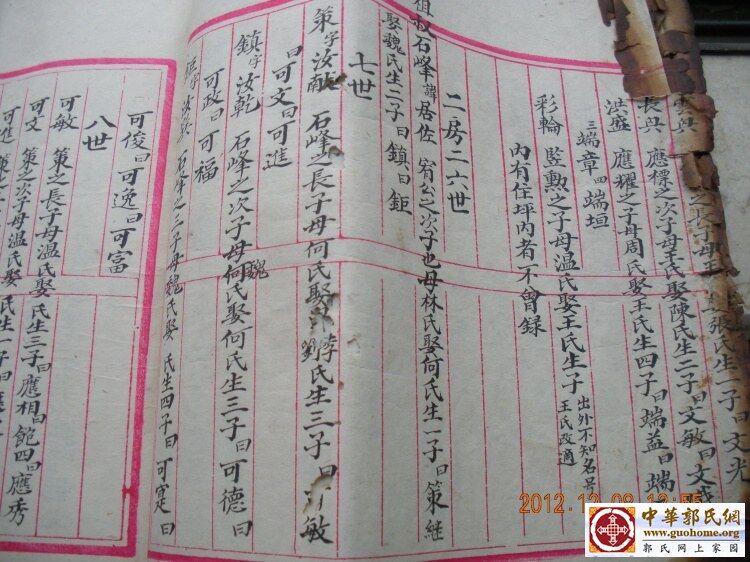 之長子母
張氏生一子曰文光
長兴 應標之次子母王氏娶陳氏生二子曰文敏曰文成
洪盛 應耀之子母周氏娶王氏生四子曰端益曰端
三端章四端垣
彩輪 監勲之子母温氏娶王氏生子 出外不知名号
王氏改適
內有住坪內者不曾録
二房二六世
祖叔石峰諱居佐 宥公之次子也母林氏娶何氏生一子曰策継
娶魏氏生二子曰鎮曰鉅
七世
策字汝猷 石峰之長子母何氏娶 氏生三子曰可敏
曰可文曰可進
鎮字汝乾 石峰之次子母魏氏娶何氏生三子曰可德曰
可政曰可福
鉅字汝欽 石峰之三子母魏氏娶 氏生四子曰可寔曰
可俊曰可逸曰可富
八世
可敏 策之長子母温氏娶 氏生三子曰應相曰飽四曰應秀
可文 策之次子母温氏娶 氏生一子曰應
可進 策之
2012.12.09
中華郭氏網
www.guohome.org
郭氏网上家园